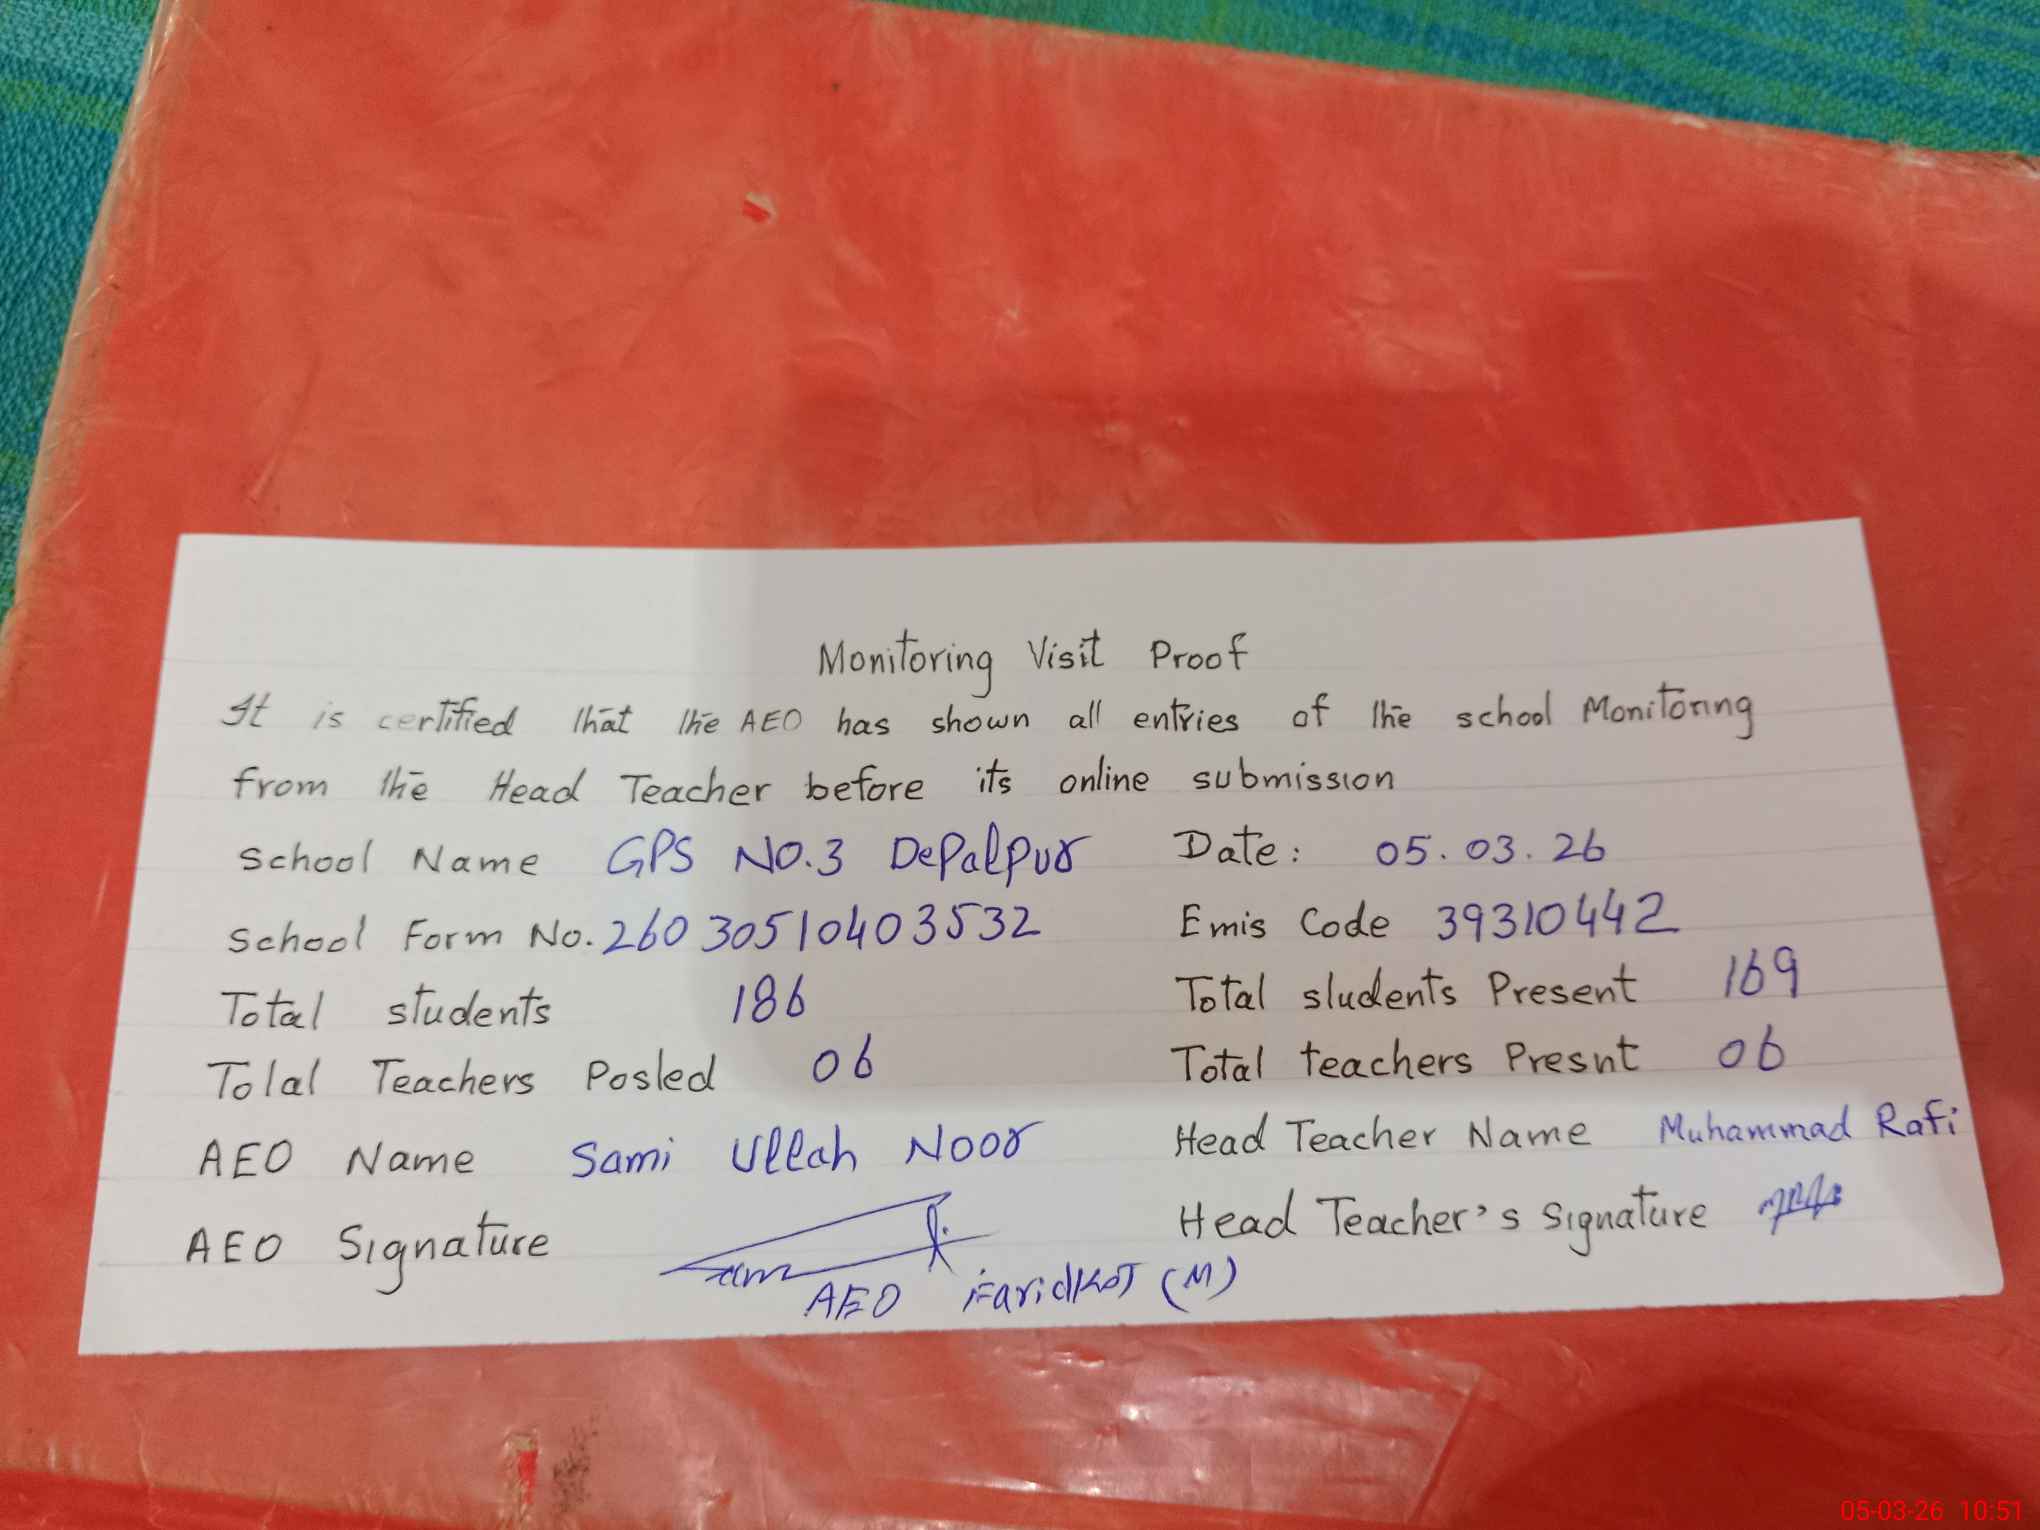 Monitoring Visit Proof
It is certified that the AEO has shown all entries of the school Monitoring
from the Head Teacher before its online submission
School Name GPS NO.3 Depalpur Date: 05.03.26
School Form No. 26030510403532 Emis Code 39310442
Total students 186 Total students Present 169
Total Teachers Posted 06 Total teachers Presnt 06
AEO Name Sami Ullah Noor Head Teacher Name Muhammad Rafi
AEO Signature Head Teacher's Signature
AEO FaridKot (M)
05-03-26 10:51